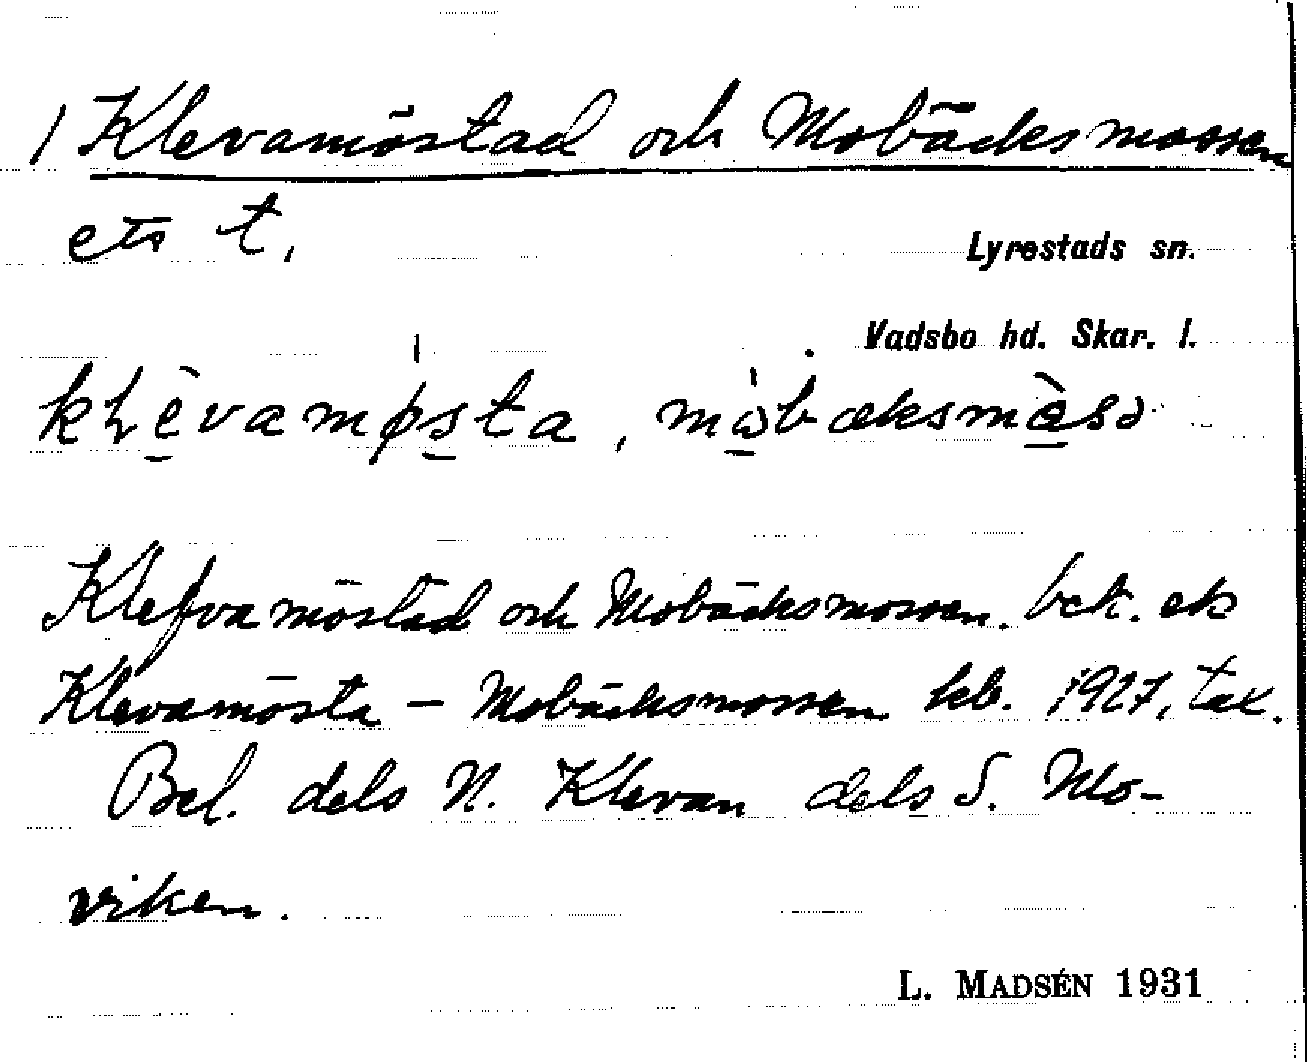 1 Klevamöstad och Mobäcksmossen
ets t,
Lyrestads sn.
Vadsbo hd. Skar. l.
Klefvamöstad och Mobäcksmossen. bek. ek
Klevamösta – Mobäcksmossen kb. 1927, tax.
Bel. dels N. Klevan dels S. Mo-
viken.
L. MADSÉN 1931